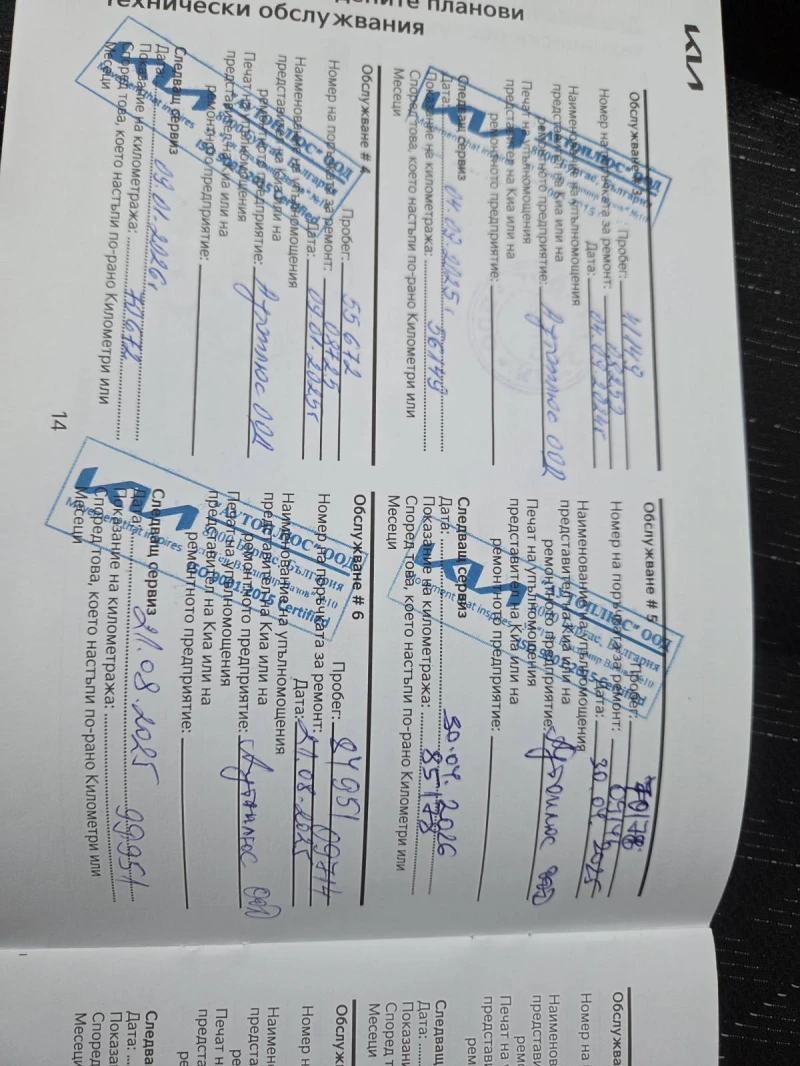 планови
технически обслужвания
KIA
Обслужване # 3
Пробег: 41149
Номер на поръчката за ремонт: 08252
Дата: 04.09.2024г
Наименование на упълномощения
представител на Киа или на
ремонтното предприятие: Аутоплюс ООД
Печат на упълномощения
представител на Киа или на
ремонтното предприятие:
Следващ сервиз
Дата: 04.09.2025г
Показание на километража: 56149
Според това, което настъпи по-рано Километри или
Месеци
Обслужване # 4
Пробег: 55672
Номер на поръчката за ремонт: 08725
Дата: 09.01.2025г
Наименование на упълномощения
представител на Киа или на
ремонтното предприятие: Аутоплюс ООД
Печат на упълномощения
представител на Киа или на
ремонтното предприятие:
Следващ сервиз
Дата: 09.01.2026г
Показание на километража: 70672
Според това, което настъпи по-рано Километри или
Месеци
14
Обслужване # 5
Пробег: 70178
Номер на поръчката за ремонт:
Дата: 30.04.2025
Наименование на упълномощения
представител на Киа или на
ремонтното предприятие: Аутоплюс ООД
Печат на упълномощения
представител на Киа или на
ремонтното предприятие:
Следващ сервиз
Дата: 30.04.2026
Показание на километража: 85178
Според това, което настъпи по-рано Километри или
Месеци
Обслужване # 6
Пробег: 84951
Номер на поръчката за ремонт: 09714
Дата: 21.08.2025
Наименование на упълномощения
представител на Киа или на
ремонтното предприятие: Аутоплюс ООД
Печат на упълномощения
представител на Киа или на
ремонтното предприятие:
Следващ сервиз
Дата: 21.08.2025
Показание на километража: 99951
Според това, което настъпи по-рано Километри или
Месеци
KIA
Movement that inspires
"АУТОПЛЮС" ООД
8000 Бургас, България
ISO 9001:2015 Certified